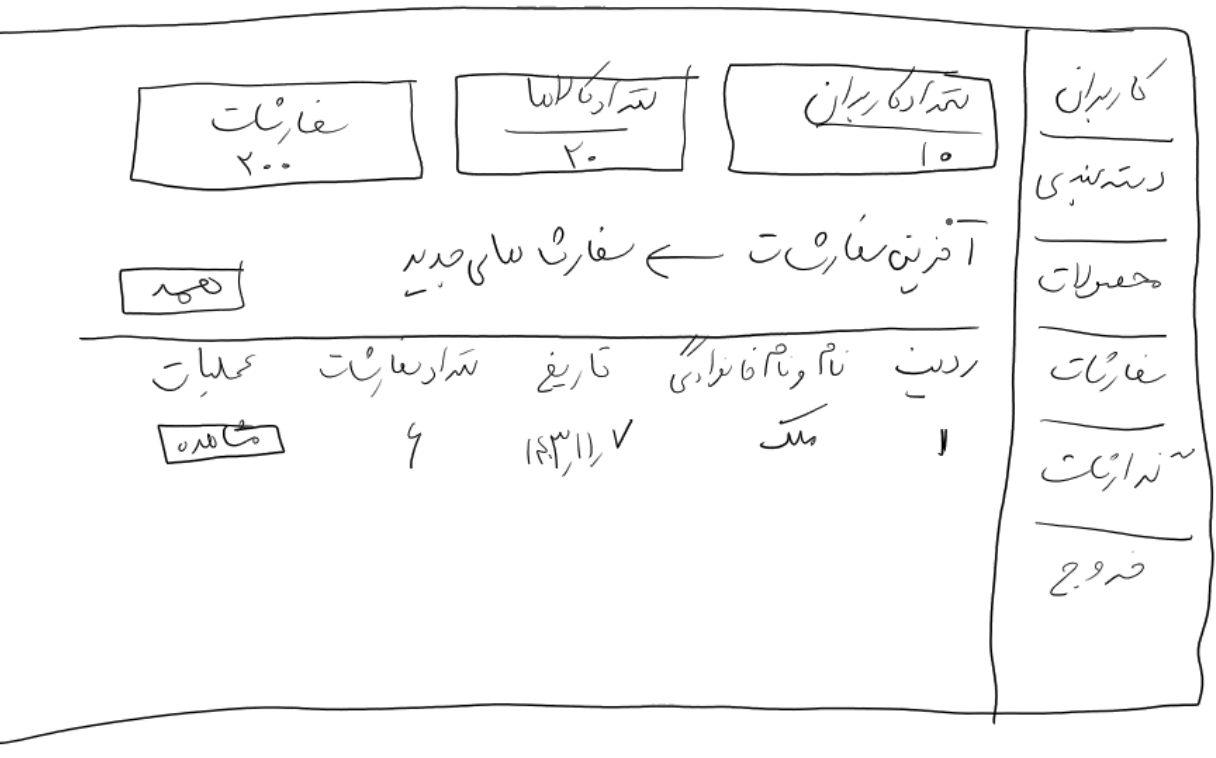 کاربران
دسته‌بندی
محصولات
سفارشات
خروج
تعداد کاربران
۱۰
تعداد کالاها
۲۰
سفارشات
۲۰۰
آخرین سفارشات ← سفارش های جدید
همه
ردیف نام و نام خانوادگی تاریخ تعداد سفارشات عملیات
۱ ملک ۱۴۰۳,۱۱,۷ ۶ مشاهده